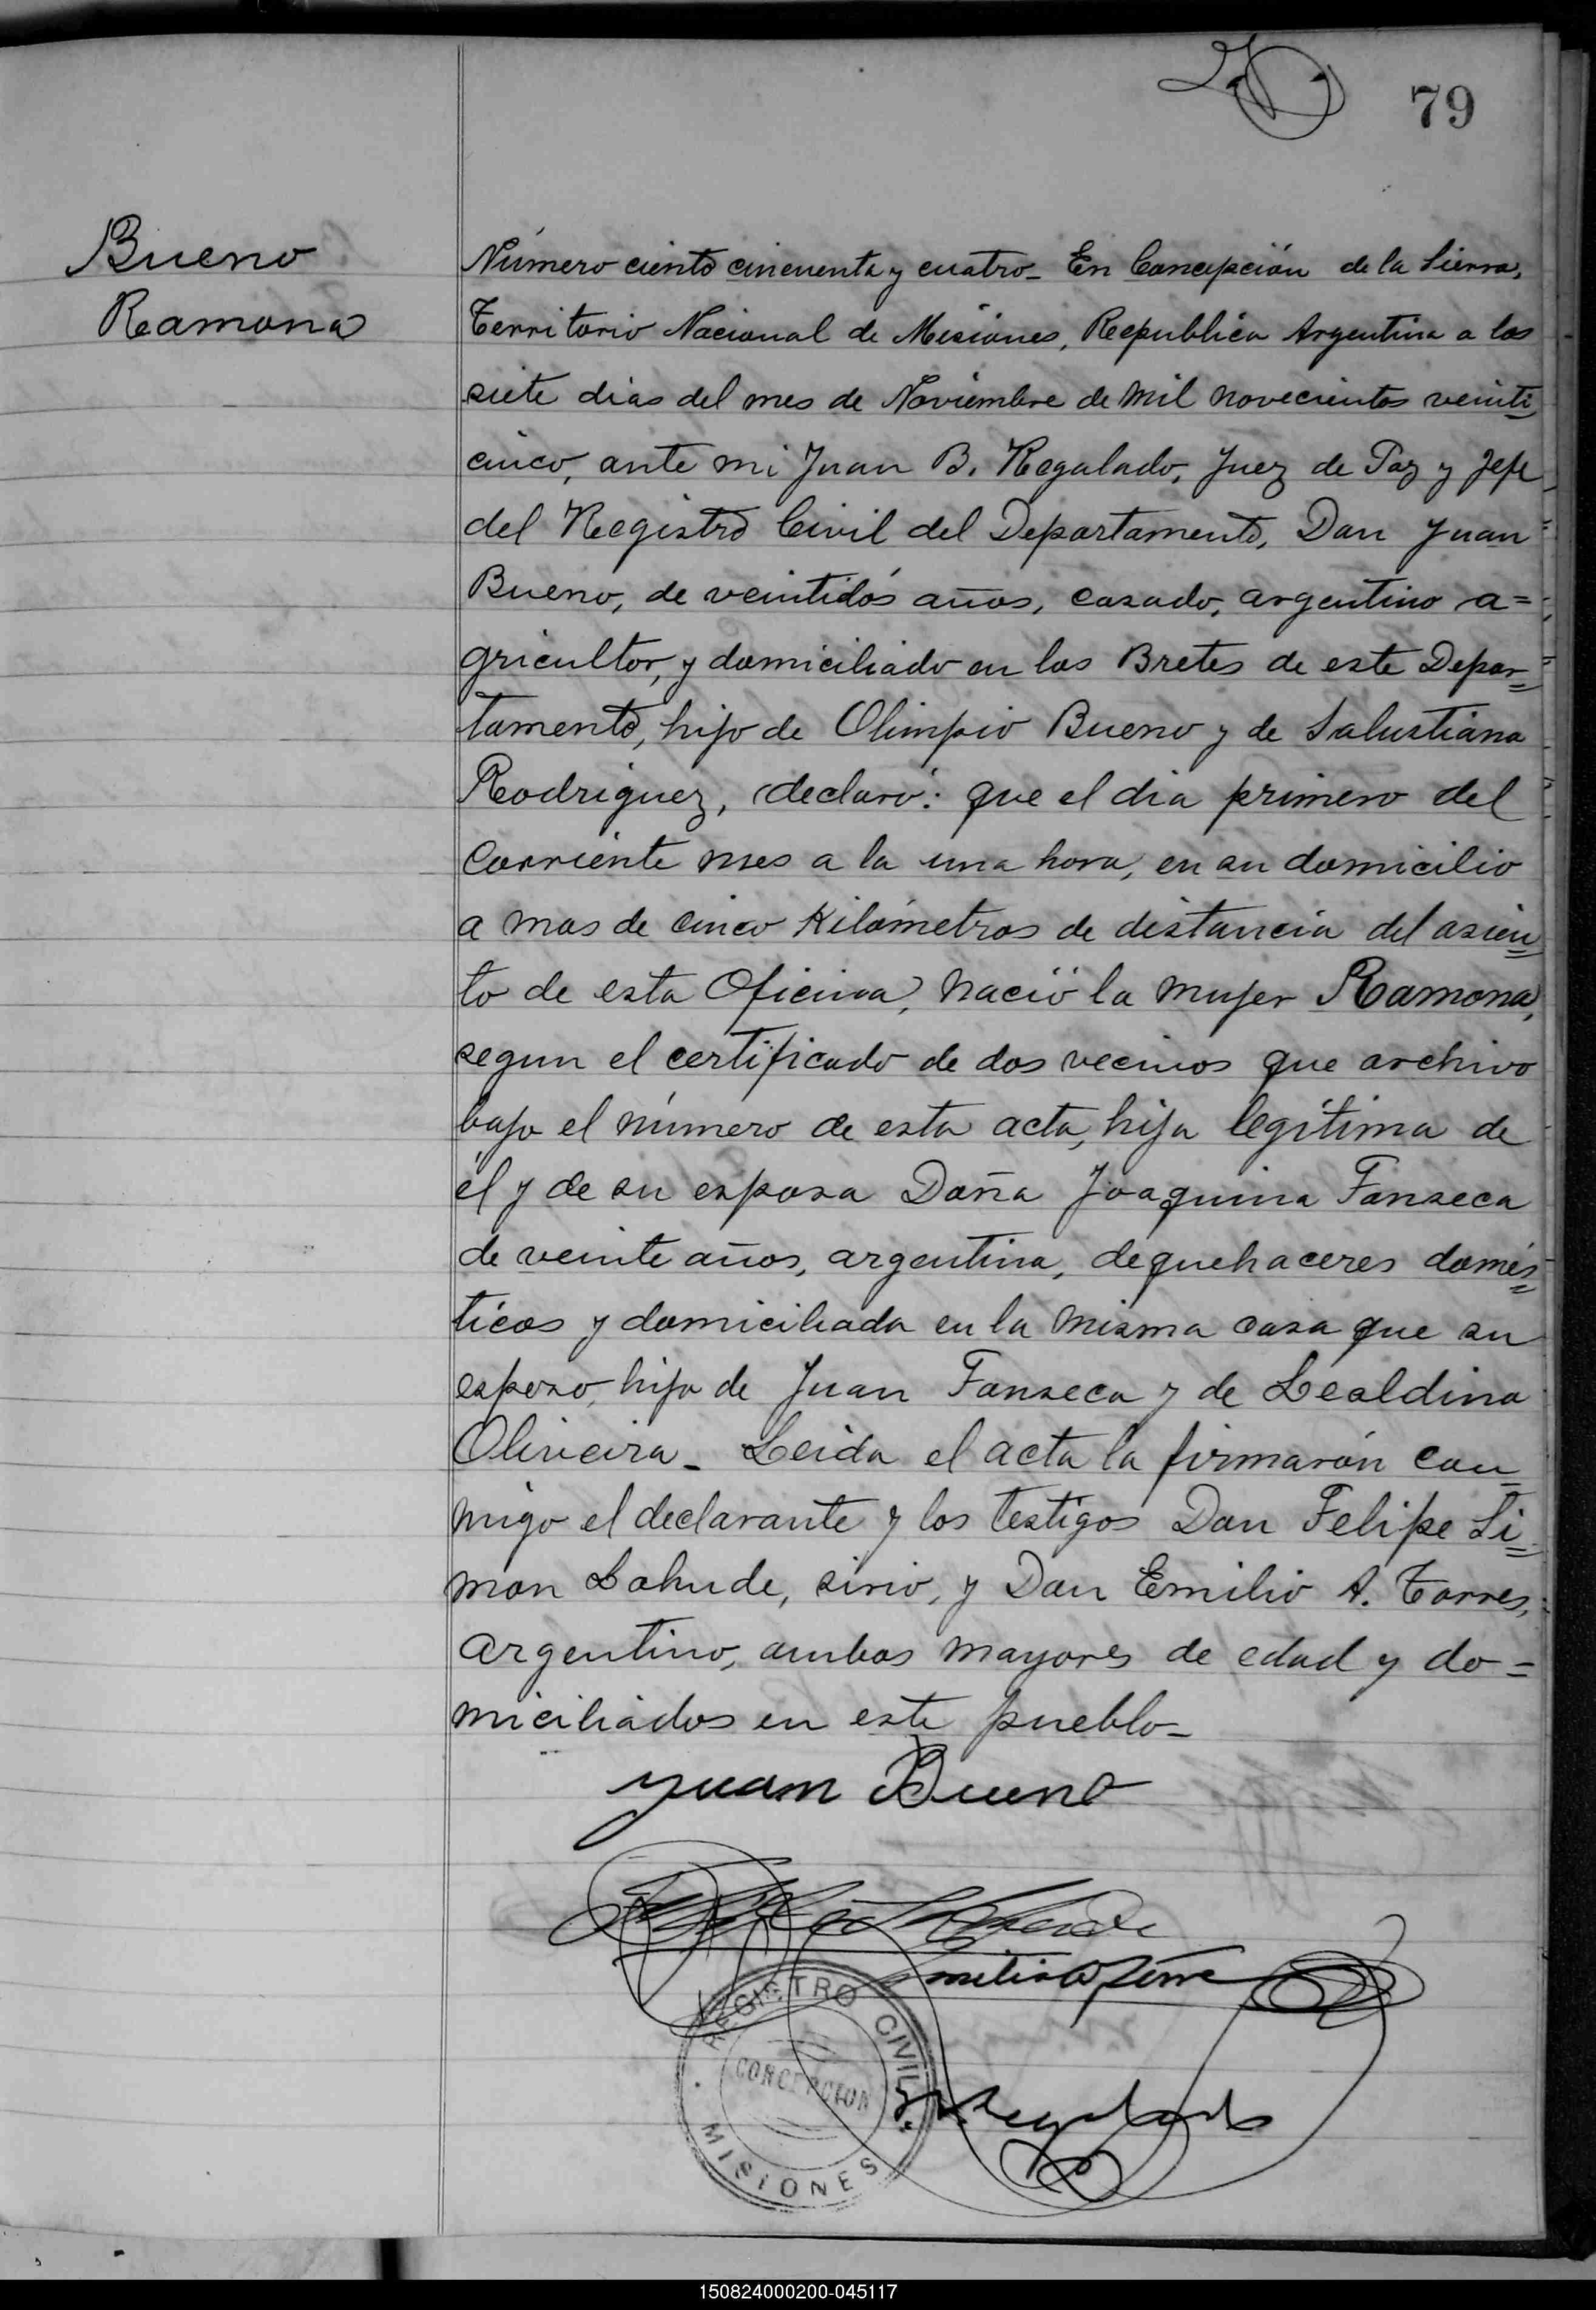 79
Bueno
Ramona
Número ciento cincuenta y cuatro_ En Concepción de la Sierra,
Territorio Nacional de Misiones, Republica Argentina a los
siete dias del mes de Noviembre de mil novecientos veinti
cinco, ante mi Juan B. Regalado, Juez de Paz y Jefe
del Registro Civil del Departamento, Don Juan
Bueno, de veintidós años, casado, argentino a=
gricultor, y domiciliado en los Bretes de este Depar=
tamento, hijo de Olimpio Bueno y de Salustiana
Rodriguez, declaró: que el dia primero del
corriente mes a la una hora, en su domicilio
a mas de cinco Kilómetros de distancia del asien=
to de esta Oficina, nació la mujer Ramona,
segun el certificado de dos vecinos que archivo
bajo el número de esta acta, hija legítima de
él y de su esposa Doña Joaquina Fonseca
de veinte años, argentina, de quehaceres domés=
ticos y domiciliada en la misma casa que su
esposo, hija de Juan Fonseca y de Lealdina
Oliveira_ Leida el acta la firmarón con
migo el declarante y los testigos Don Felipe Si=
mon Lahude, sirio, y Don Emilio A. Torres,
argentino, ambos mayores de edad y do=
miciliados en este pueblo_
Juan Bueno
REGISTRO CIVIL
CONCEPCION
MISIONES
150824000200-045117